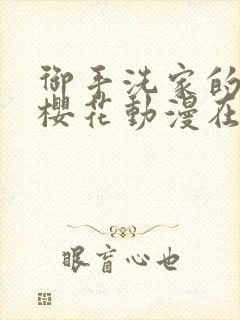 御手洗家的
櫻花動漫在
眼盲心也